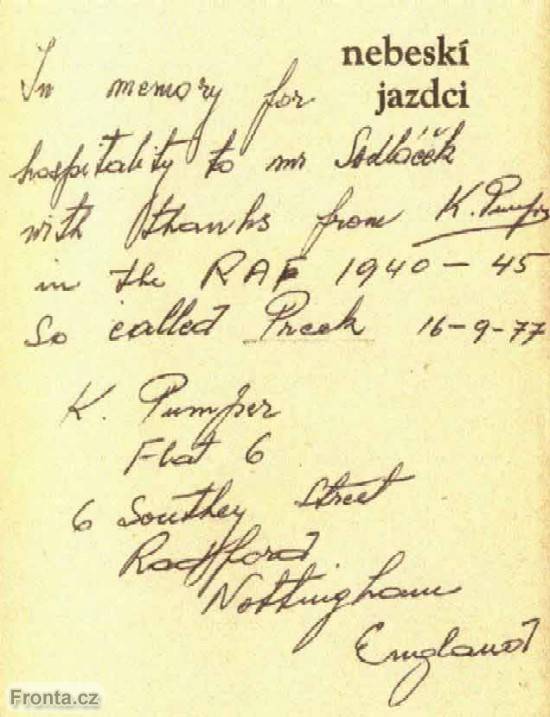 nebeskí
jazdci
In memory for
hospitality to mr Sedláček
with thanks from K. Pumper
in the RAF 1940 - 45
So called Preek 16-9-77
K. Pumper
Flat 6
6 Southey Street
Radford
Nottingham
England
Fronta.cz